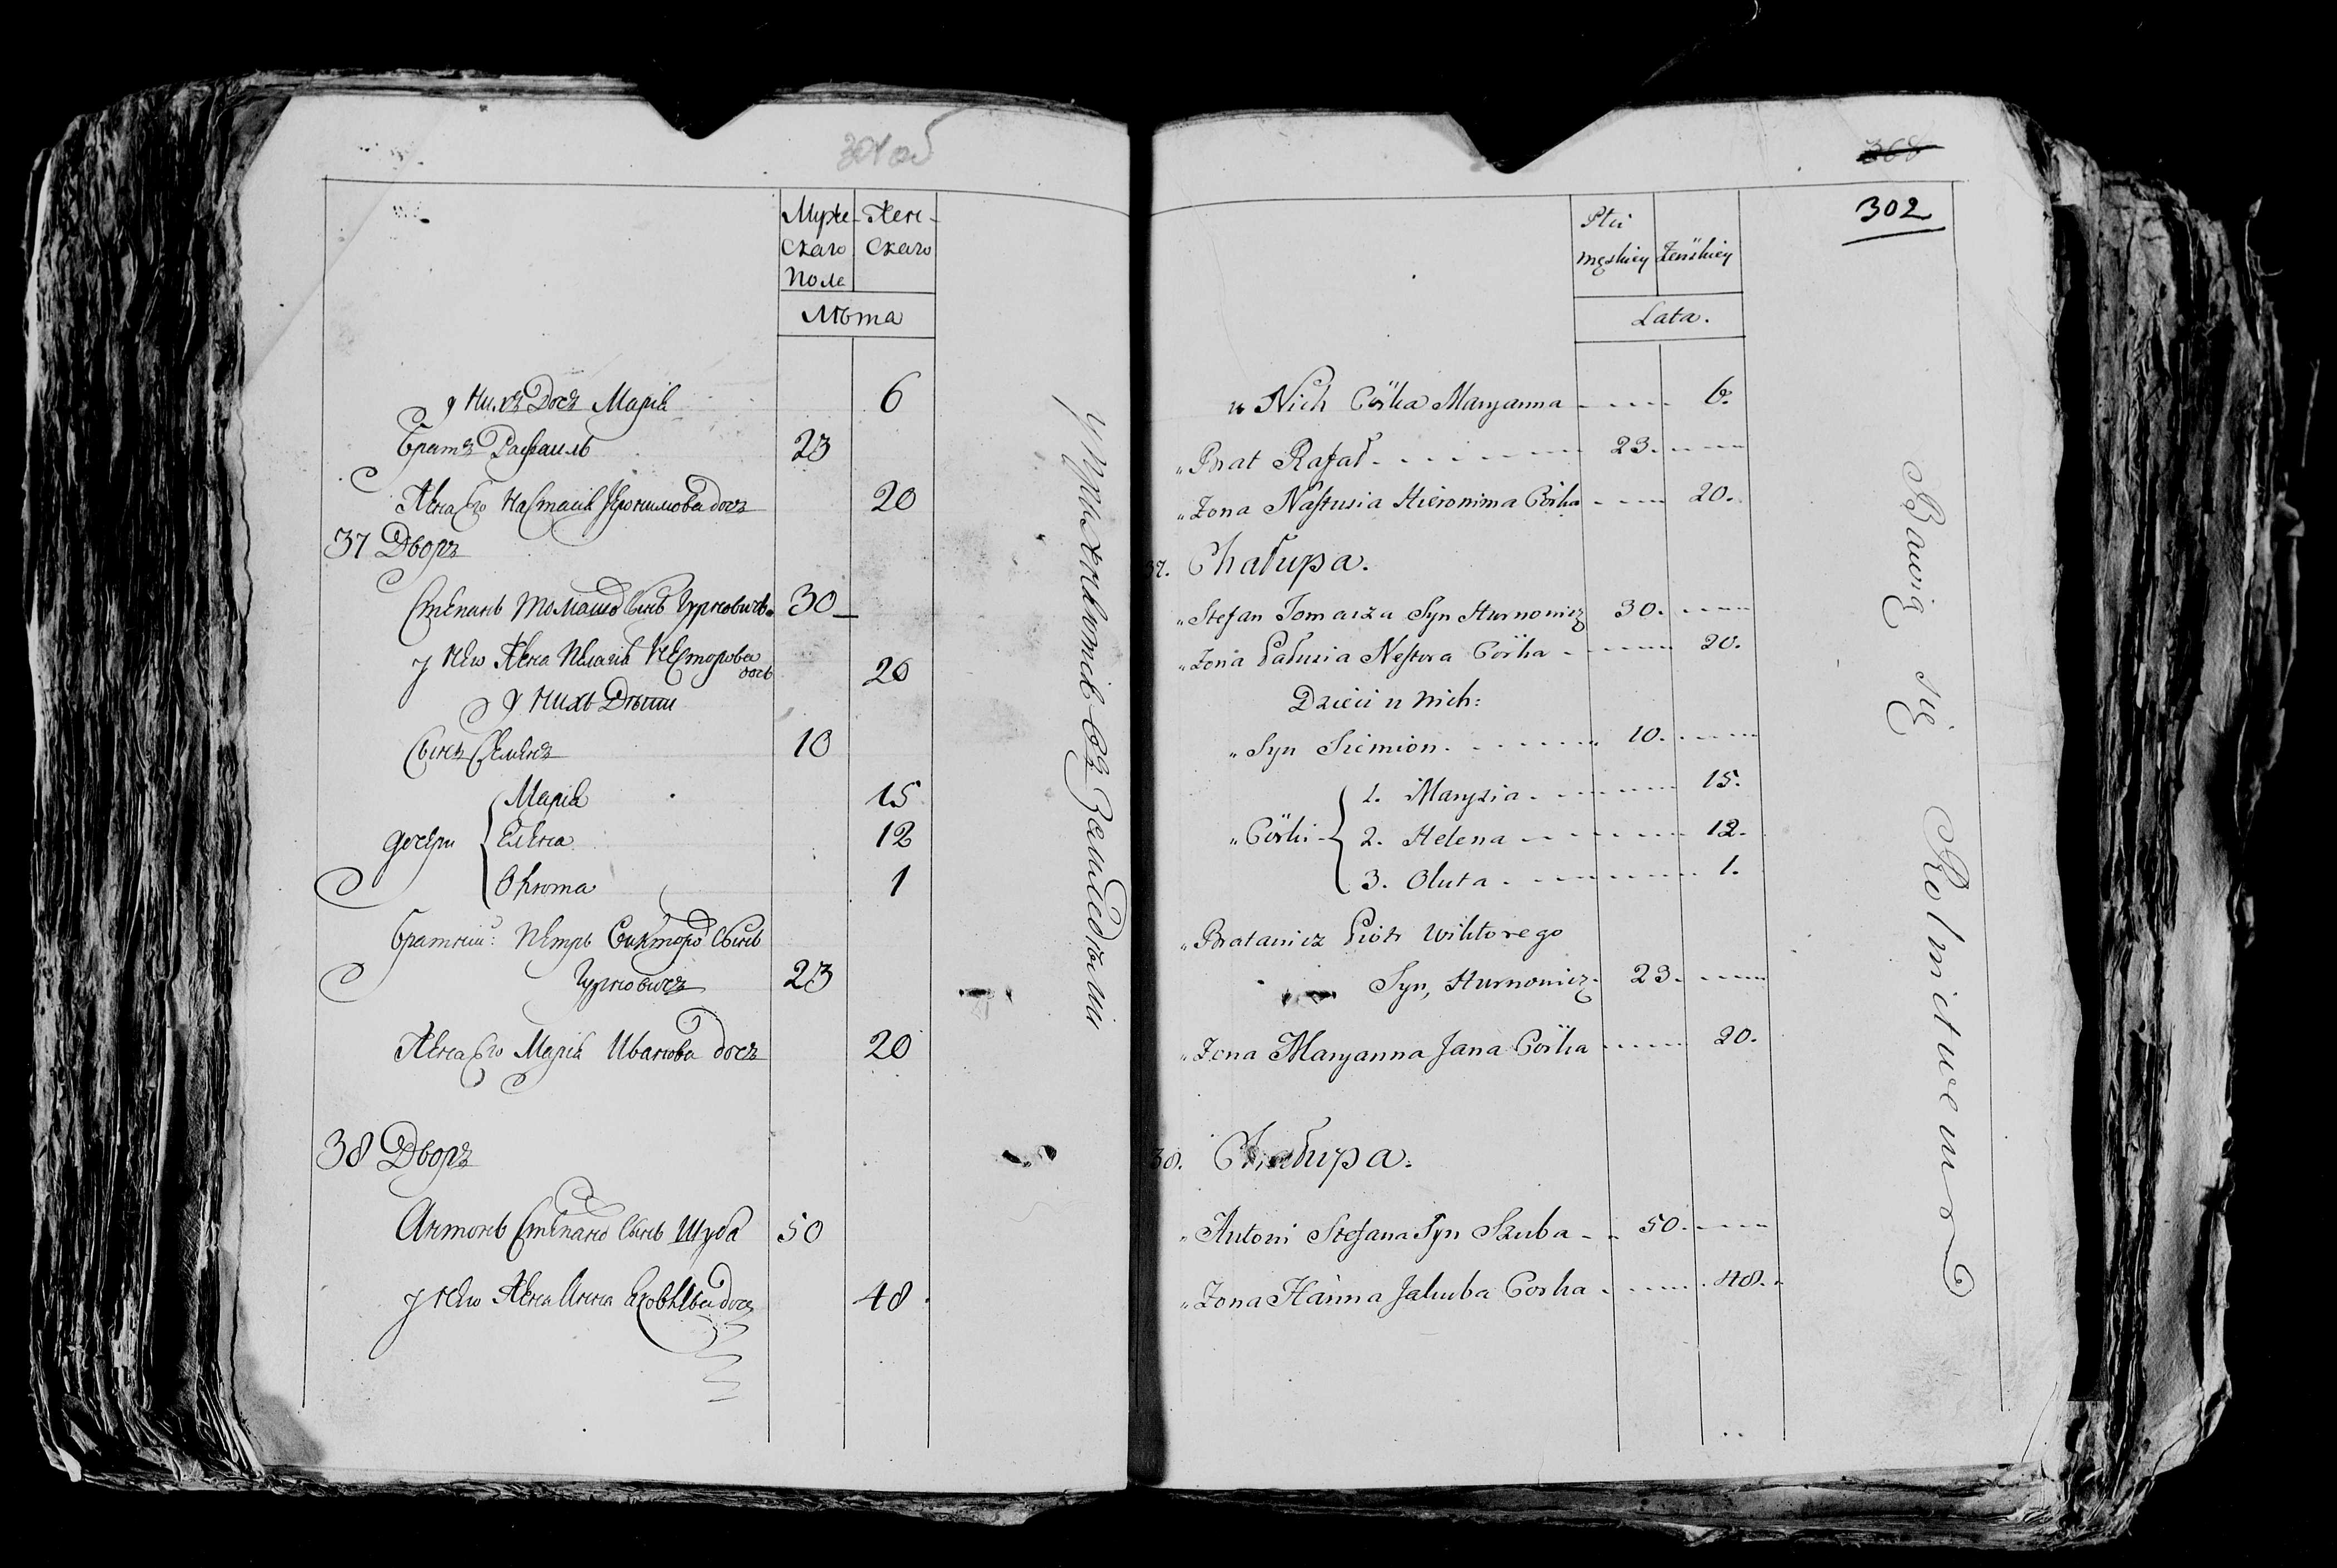 301 об
Муже- Жен-
скаго скаго
Пола
Лѣта
у Нихъ Дочь Марія 6
Братъ Рафаилъ 23
Жена Его Настасія Іеронимова дочь 20
37 Дворъ
Степанъ Томашо Сынъ Гурновичъ 30
у Него Жена Пелагія Несторова дочь 20
у Нихъ Дѣти
Сынъ Семенъ 10
Марія 15
дочери Елена 12
Олюта 1
Братнии: Петръ Викторо Сынъ
Гурновичъ 23
Жена Его Марія Иванова дочь 20
38 Дворъ
Антонъ Степано Сынъ Шуба 50
у Него Жена Анна Яковлева дочь 48
Упражняются въ Земледѣліи
368
302
Płci
męskiey Żeńskiey
Lata.
u Nich Córka Maryanna 6.
„ Brat Rafał 23.
„ Żona Nastusia Hieronima Córka 20.
37. Chałupa.
„ Stefan Tomasza Syn Hurnowicz 30.
„ Żona Pałusia Nestora Córka 20.
Dzieci u Nich:
„ Syn Siemion 10.
1. Marysia 15.
„ Córki 2. Helena 12.
3. Oluta 1.
„ Bratanicz Piotr Wiktorego
Syn, Hurnowicz 23.
„ Żona Maryanna Jana Córka 20.
38. Chałupa.
„ Antoni Stefana Syn Szuba 50.
„ Żona Hanna Jakuba Corka 48.
Bawią się Rolnictwem